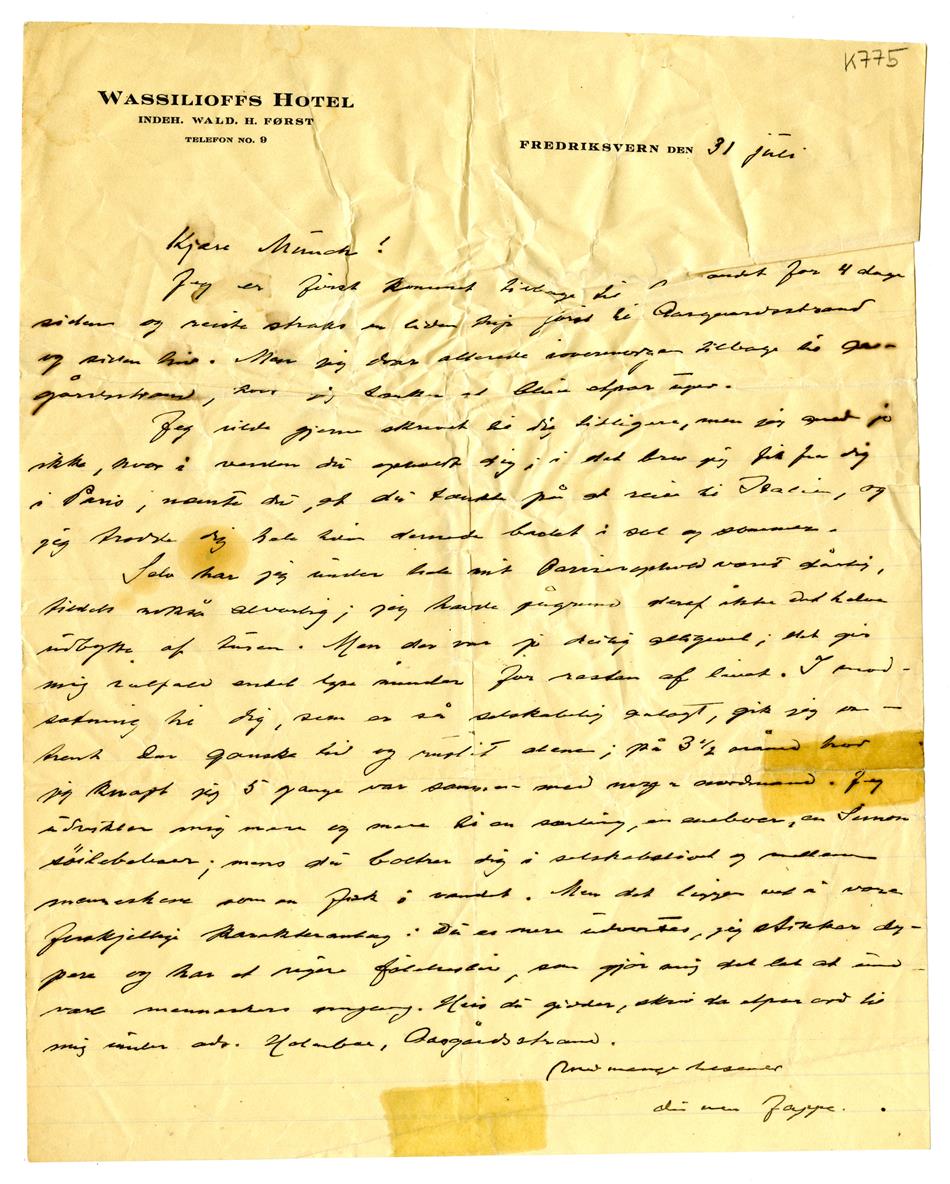 K775
WASSILIOFFS HOTEL
INDEH. WALD. H. FØRST
TELEFON NO. 9
FREDRIKSVERN DEN 31 juli
Kjære Munch!
Jeg er først kommet tilbage til andet for 4 dage
siden og reiste straks en liden trip først til Aasgaardsstrand
og siden hid. Men jeg drar allerede iovermorgen tilbage til Aas-
gårdsstrand, hvor jeg tænker at blive etpar uger.
Jeg vilde gjerne skrevet til dig tidligere, men jeg
ikke, hvor i verden du opholdt dig; i det brev jeg fik fra dig
i Paris, nævnte du, at du tænkte på at reise til Italien, og
jeg trodde dig hele tiden dernede badet i sol og sommer.
Selv har jeg under hele mit Pariserophold været dårlig,
tildels nokså alvorlig; jeg havde pågrund deraf ikke det hele
udbytte af turen. Men der var jo deilig alligevel; det gir
mig ialfald endel lyse minder for resten af livet. I mod-
sætning til dig, som er så selskabelig anlagt, gik jeg om-
trent der ganske tid og alene; på 3 1/2 måned
jeg knapt jeg 5 gange var sammen med nogen nordmænd. Jeg
udvikler mig mere og mere til en særling, en eneboer, en Simon
söilehelgen; mens du boltrer dig i selskabslivet og mellem
menneskene som en fisk i vandet. Men det ligger vel i vore
forskjellige karakteranlæg: Du er mere udvortes, jeg stikker dy-
pere og har et rigere følelsesliv, som gjør mig det let at und-
være menneskers omgang. Hvis du gider, skriv da etpar ord til
mig under adr. Aasgårdsstrand.
Med mange hilsener
din ven Jappe.